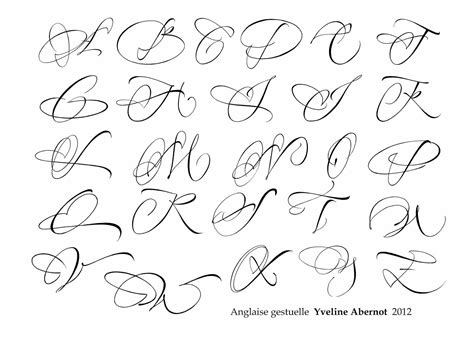 A B C D E F
G H I J K
L M N O P
Q R S T U
V W X Y Z
Anglaise gestuelle Yveline Abernot 2012